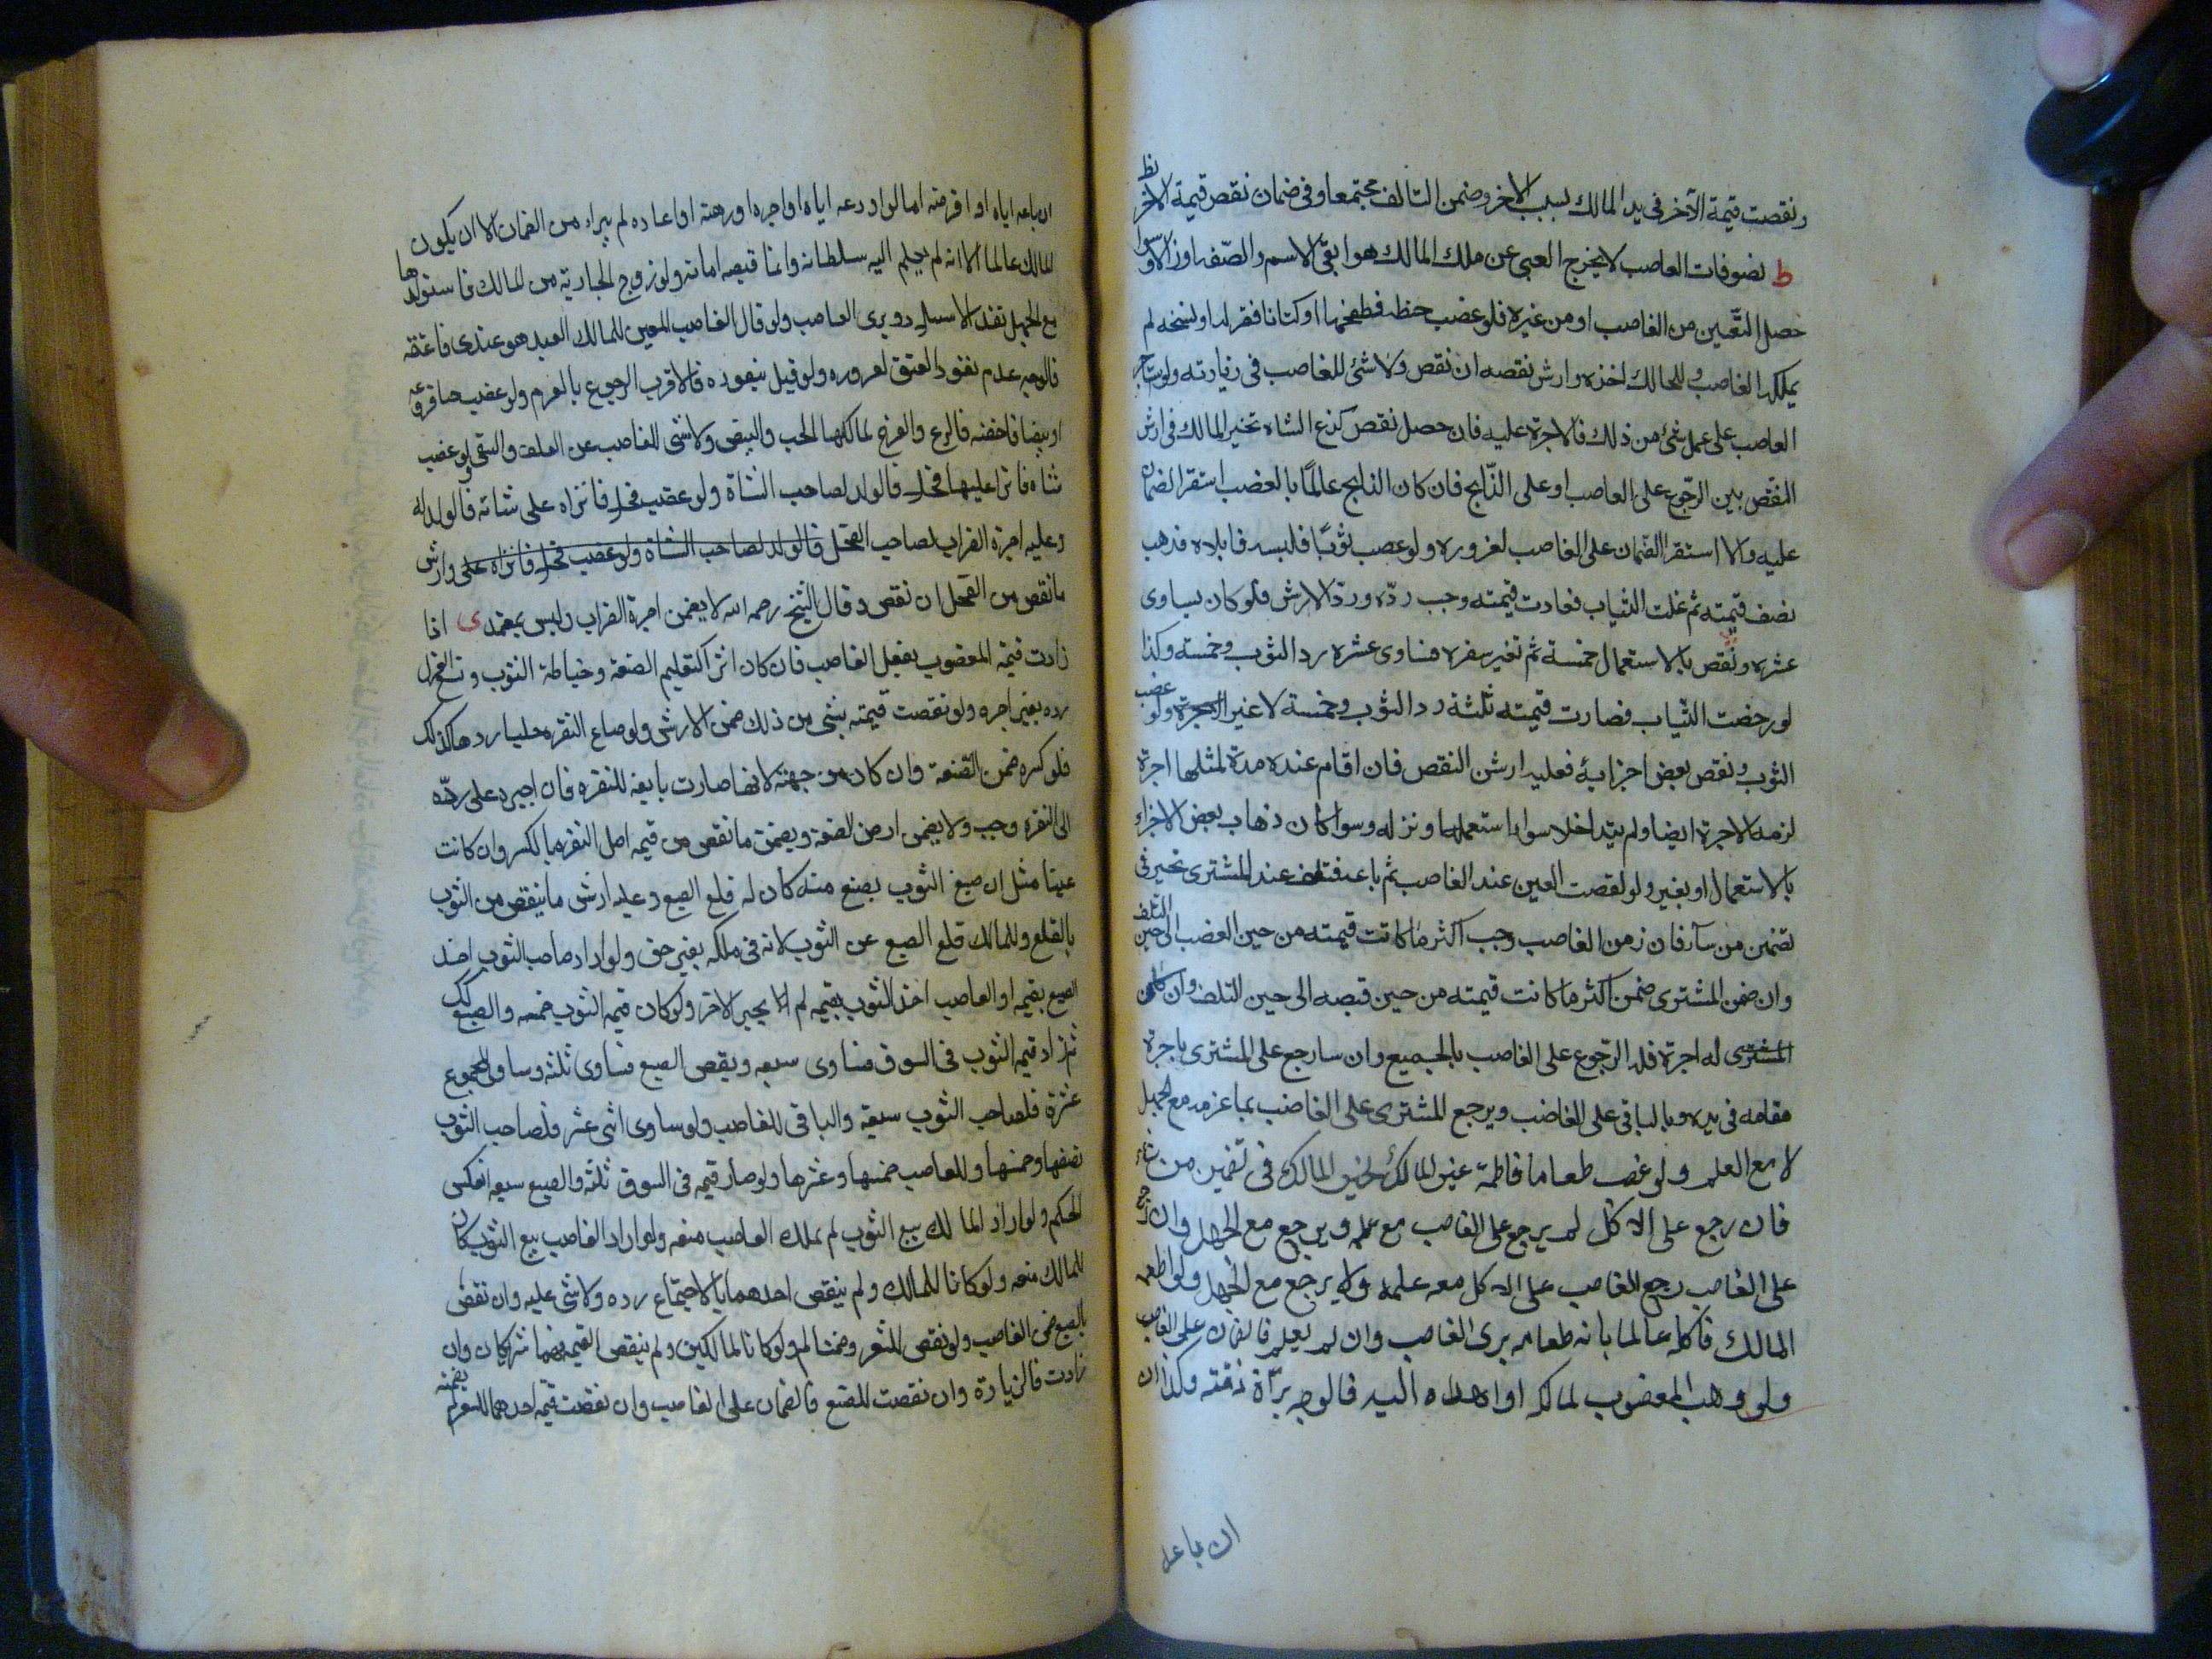 ونقصت قيمة الآخر فى يد المالك بسبب الاخر وضمن التالف مجتمعا وفى ضمان نقص قيمة الاخر نظ
ط تصرفات الغاصب لا يخرج العين عن ملك المالك سوا بقى الاسم والصفه اوزالا وسوا
حصل التغيير من الغاصب او من غيره فلو غصب حنطه فطحنها او كتانا فغزله او نسجه لم
يملكه الغاصب وللمالك اخذه وارش نقصه ان نقص ولا شئ للغاصب فى زيادته ولو استاجر
الغاصب على عمل شئ من ذلك فالاجرة عليه فان حصل نقص كذبح الشاه تخير المالك فى ارش
النقص بين الرجوع على الغاصب او على الذابح فان كان الذابح عالمًا بالغصب استقر الضمان
عليه والا استقر الضمان على الغاصب لغروره ولو غصب ثوبًا فلبسه فابلاه فذهب
نصف قيمته ثم غلت الثياب فعادت قيمته وجب ردّه وردّ الارش فلو كان يساوى
عشره ونقص بالاستعمال خمسة ثم تغير سعره فساوى عشره رد الثوب وخمسة وكذا
لو رخصت الثياب فصارت قيمته ثلثة رد الثوب وخمسة لا غير ولو غصب
الثوب ونقص بعض اجزايه فعليه ارش النقص فان اقام عنده مدة لمثلها اجرة
لزمه الاجرة ايضا ولم يتداخلا سواء استعملها ونزله وسوا كان ذهاب بعض الاجزاء
بالاستعمال او بغير ولو نقصت العين عند الغاصب ثم باعه فتلف عند المشترى تخير فى
تضمين من سآء فان ضمن الغاصب وجب اكثر ما كانت قيمته من حين الغصب الى حين التلف
وان ضمن المشترى ضمن اكثر ما كانت قيمته من حين قبضه الى حين التلف وان كان
المشترى له اجرة فله الرجوع على الغاصب بالجميع وان سا رجع على المشترى باجرة
مقامه فى يده وبالباقى على الغاصب ويرجع المشترى على الغاصب بما غرمه مع الجهل
لا مع العلم ولو غصب طعاما فاطعمه غير المالك تخير المالك فى تضمين من شاء
فان رجع على الاكل لم يرجع على الغاصب مع علمه ويرجع مع الجهل وان رجع
على الغاصب رجع الغاصب على الاكل مع علمه ولا يرجع مع الجهل ولو اطعمه
المالك فاكله عالما بانه طعامه برى الغاصب وان لم يعلم فالضمان على الغاصب
ولو وهب المغصوب لمالكه او اهداه اليه فالوجه برآة ذمته وكذا ان
ان باعه
ان باعه اياه او اقرضه اما لو اودعه اياه او اجره او رهنه او اعاده لم يبراء من الضمان الا ان يكون
المالك عالما الا انه لم يسلم اليه سلطانه وانما قبضه امانه ولو زوج الجارية من المالك فاستولدها
مع الجهل نفذ الاستيلاد وبرى الغاصب ولو قال الغاصب المعين للمالك العبد هو عبدى فاعتقه
فالوجه عدم نفوذ العتق لغروره ولو قيل بنفوذه فالاقرب الرجوع بالغرم ولو غصب حبا فزرعه
او بيضا فاحضنه فالزرع والفرخ لمالكهما الحب والبيض ولا شى للغاصب عن العلف والسقى ولو غصب
شاه فانزا عليها فحل فالولد لصاحب الشاة ولو غصب فحل فانزاه على شاته فالولد له
وعليه اجرة الضراب لصاحب الفحل فالولد لصاحب الشاة ولو غصب فحل فانزاه على وارش
ما نقص من الفحل ان نقص وقال الشيخ رحمه الله لا يضمن اجرة الضراب وليس بمعتمد ى اذا
زادت قيمة المغصوب بفعل الغاصب فان كان اثرا كتعليم الصنعة وخياطة الثوب ونسج الغزل
رده بغير اجره ولو نقصت قيمته بشى من ذلك ضمن الارش ولو صاغ النقره حليا ردها كذلك
فلو كسره ضمن الصنعة وان كان من جهته لانها صارت تابعه للنقره فان اجبره على رده
الى النقره وجب ولا يضمن ارش الصنعة ويضمن ما نقص من قيمه اصل النقره بالكسر وان كانت
عينا مثل ان صبغ الثوب بصبغ منه كان له قلع الصبغ وعليه ارش ما ينقص من الثوب
بالقلع وللمالك قلع الصبغ عن الثوب لانه فى ملكه بغير حق ولو اراد صاحب الثوب اخذ
الصبغ بقيمه او الغاصب اخذ الثوب بقيمه لم يجبر الاخر ولو كان قيمه الثوب خمسه والصبغ كذلك
ثم زاد قيمه الثوب فى السوق فساوى سبعه ونقص الصبغ فساوى ثلثه وساوى المجموع
عشرة فلصاحب الثوب سبعة والباقى للغاصب ولو ساوى اثنى عشر فلصاحب الثوب
نصفها وخمسها وللغاصب خمسها وعشرها ولو صار قيمه فى السوق ثلثه والصبغ سبعه انعكس
الحكم ولو اراد المالك بيع الثوب لم يملك الغاصب منعه ولو اراد الغاصب بيع الثوب كان
للمالك منعه ولو كانا للمالك ولم ينقص احدهما بالاجتماع رده ولا شى عليه وان نقص
بالصبغ ضمن الغاصب ولو نقص للسعر ولو كانا لمالكين ولم ينقص القيمه فهما شريكان وان
زادت فالزيادة وان نقصت للصبغ فالضمان على الغاصب وان نقصت قيمه احدهما للسعر لم يضمنه